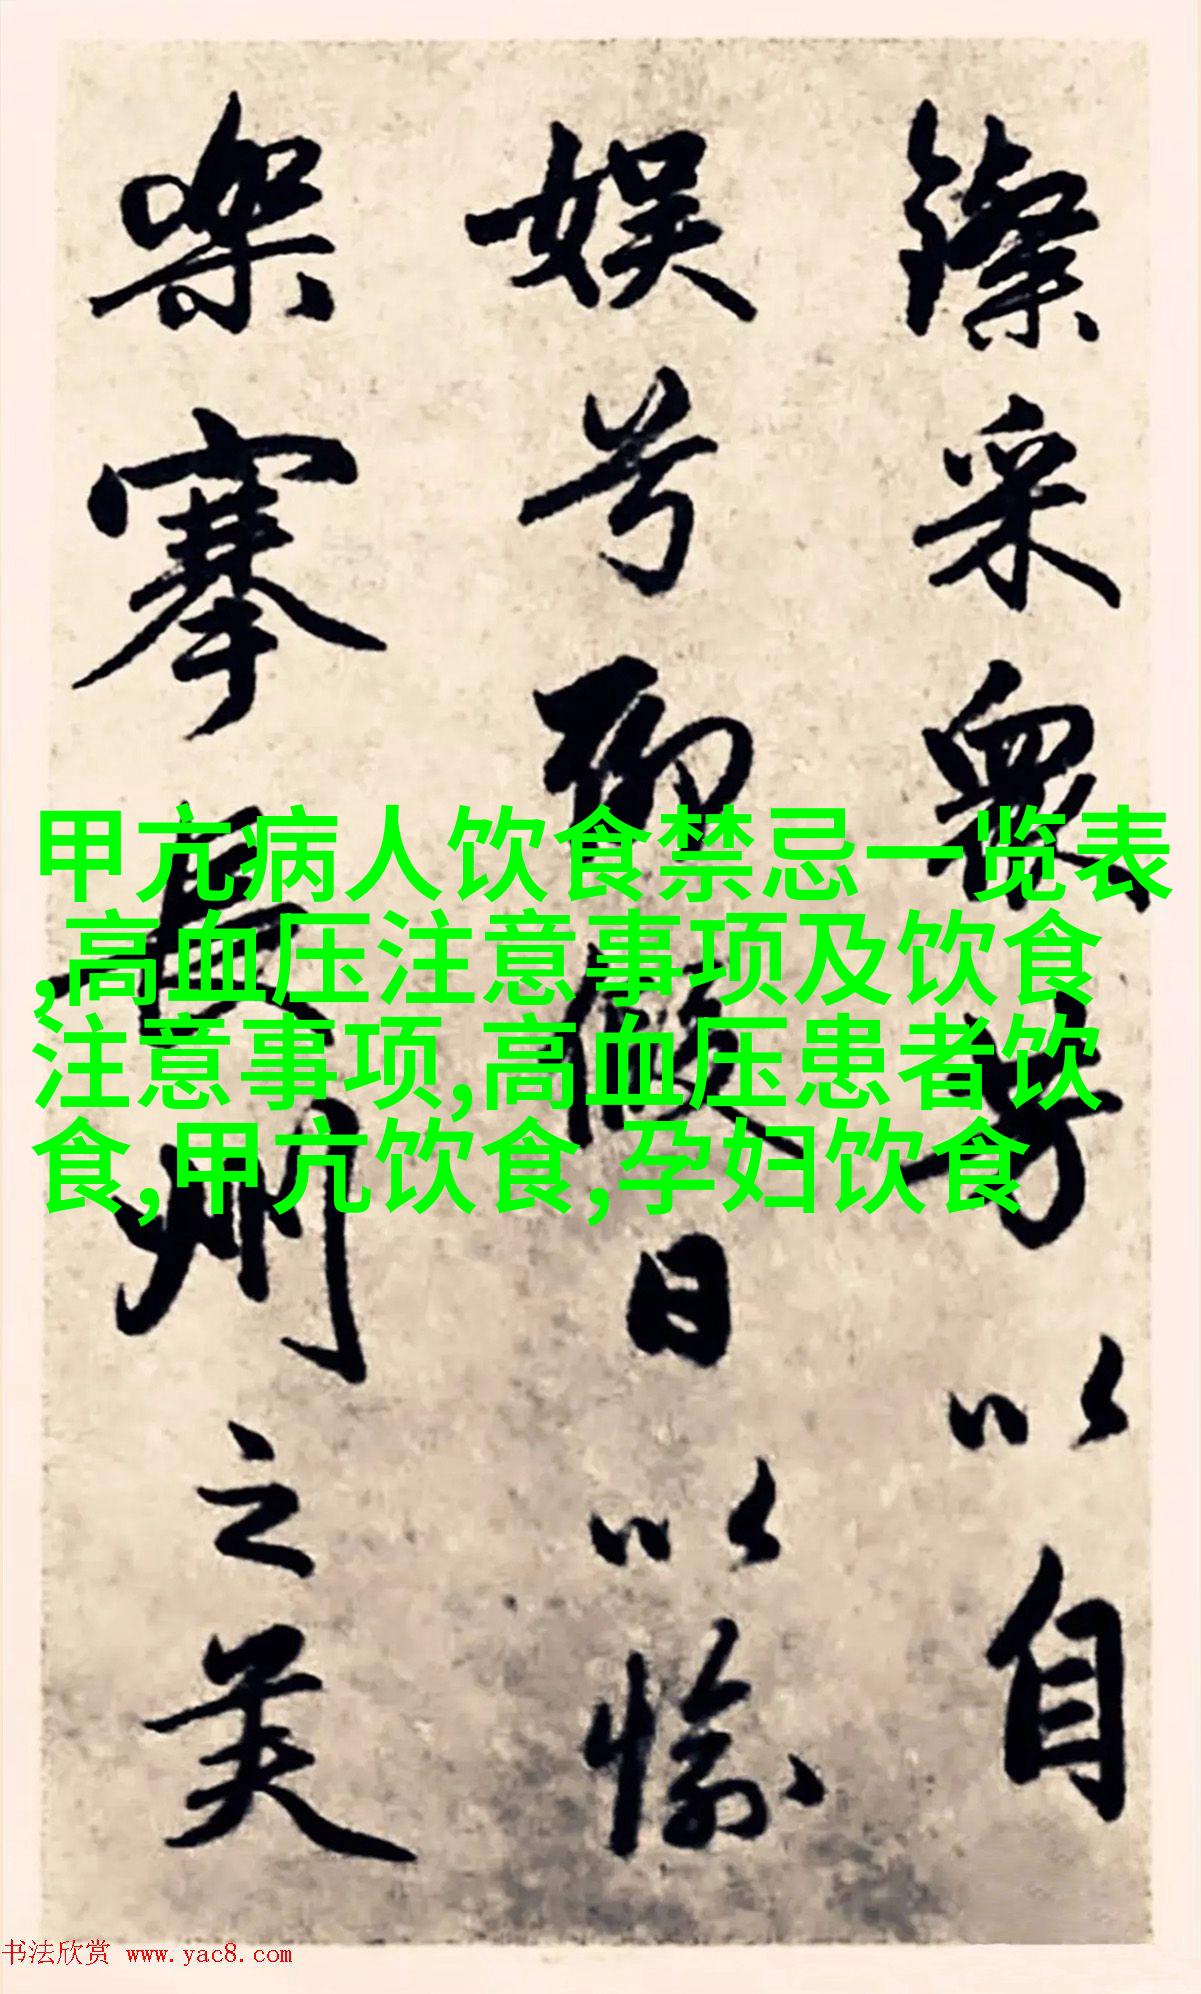 采衆芳以自
娱兮聊假日以愉
樂搴長洲之美
甲亢病人饮食禁忌一览表
,高血压注意事项及饮食
注意事项,高血压患者饮
食,甲亢饮食,孕妇饮食
书法欣赏 www.yac8.com